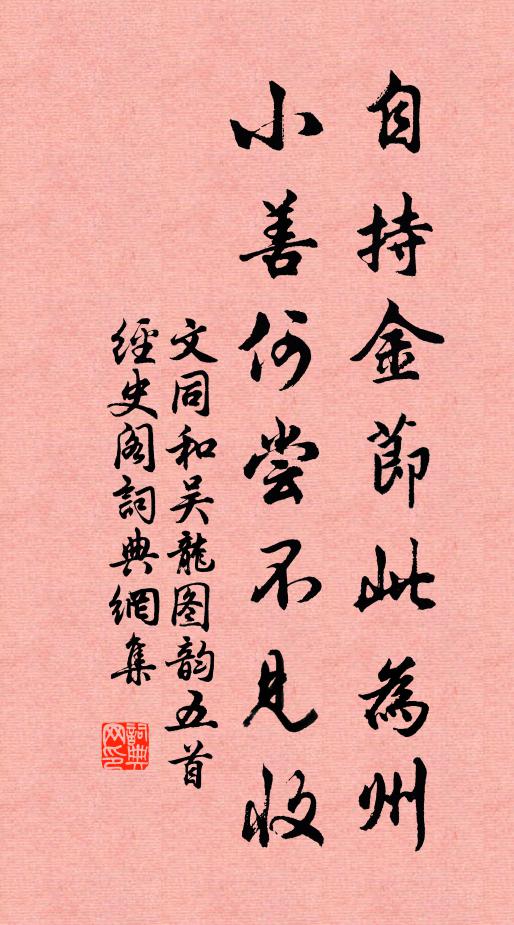 自持金節此為州
小善何尝不見收
文同和吴龍图韵五首
經史阁詞典網集
詞典
网印